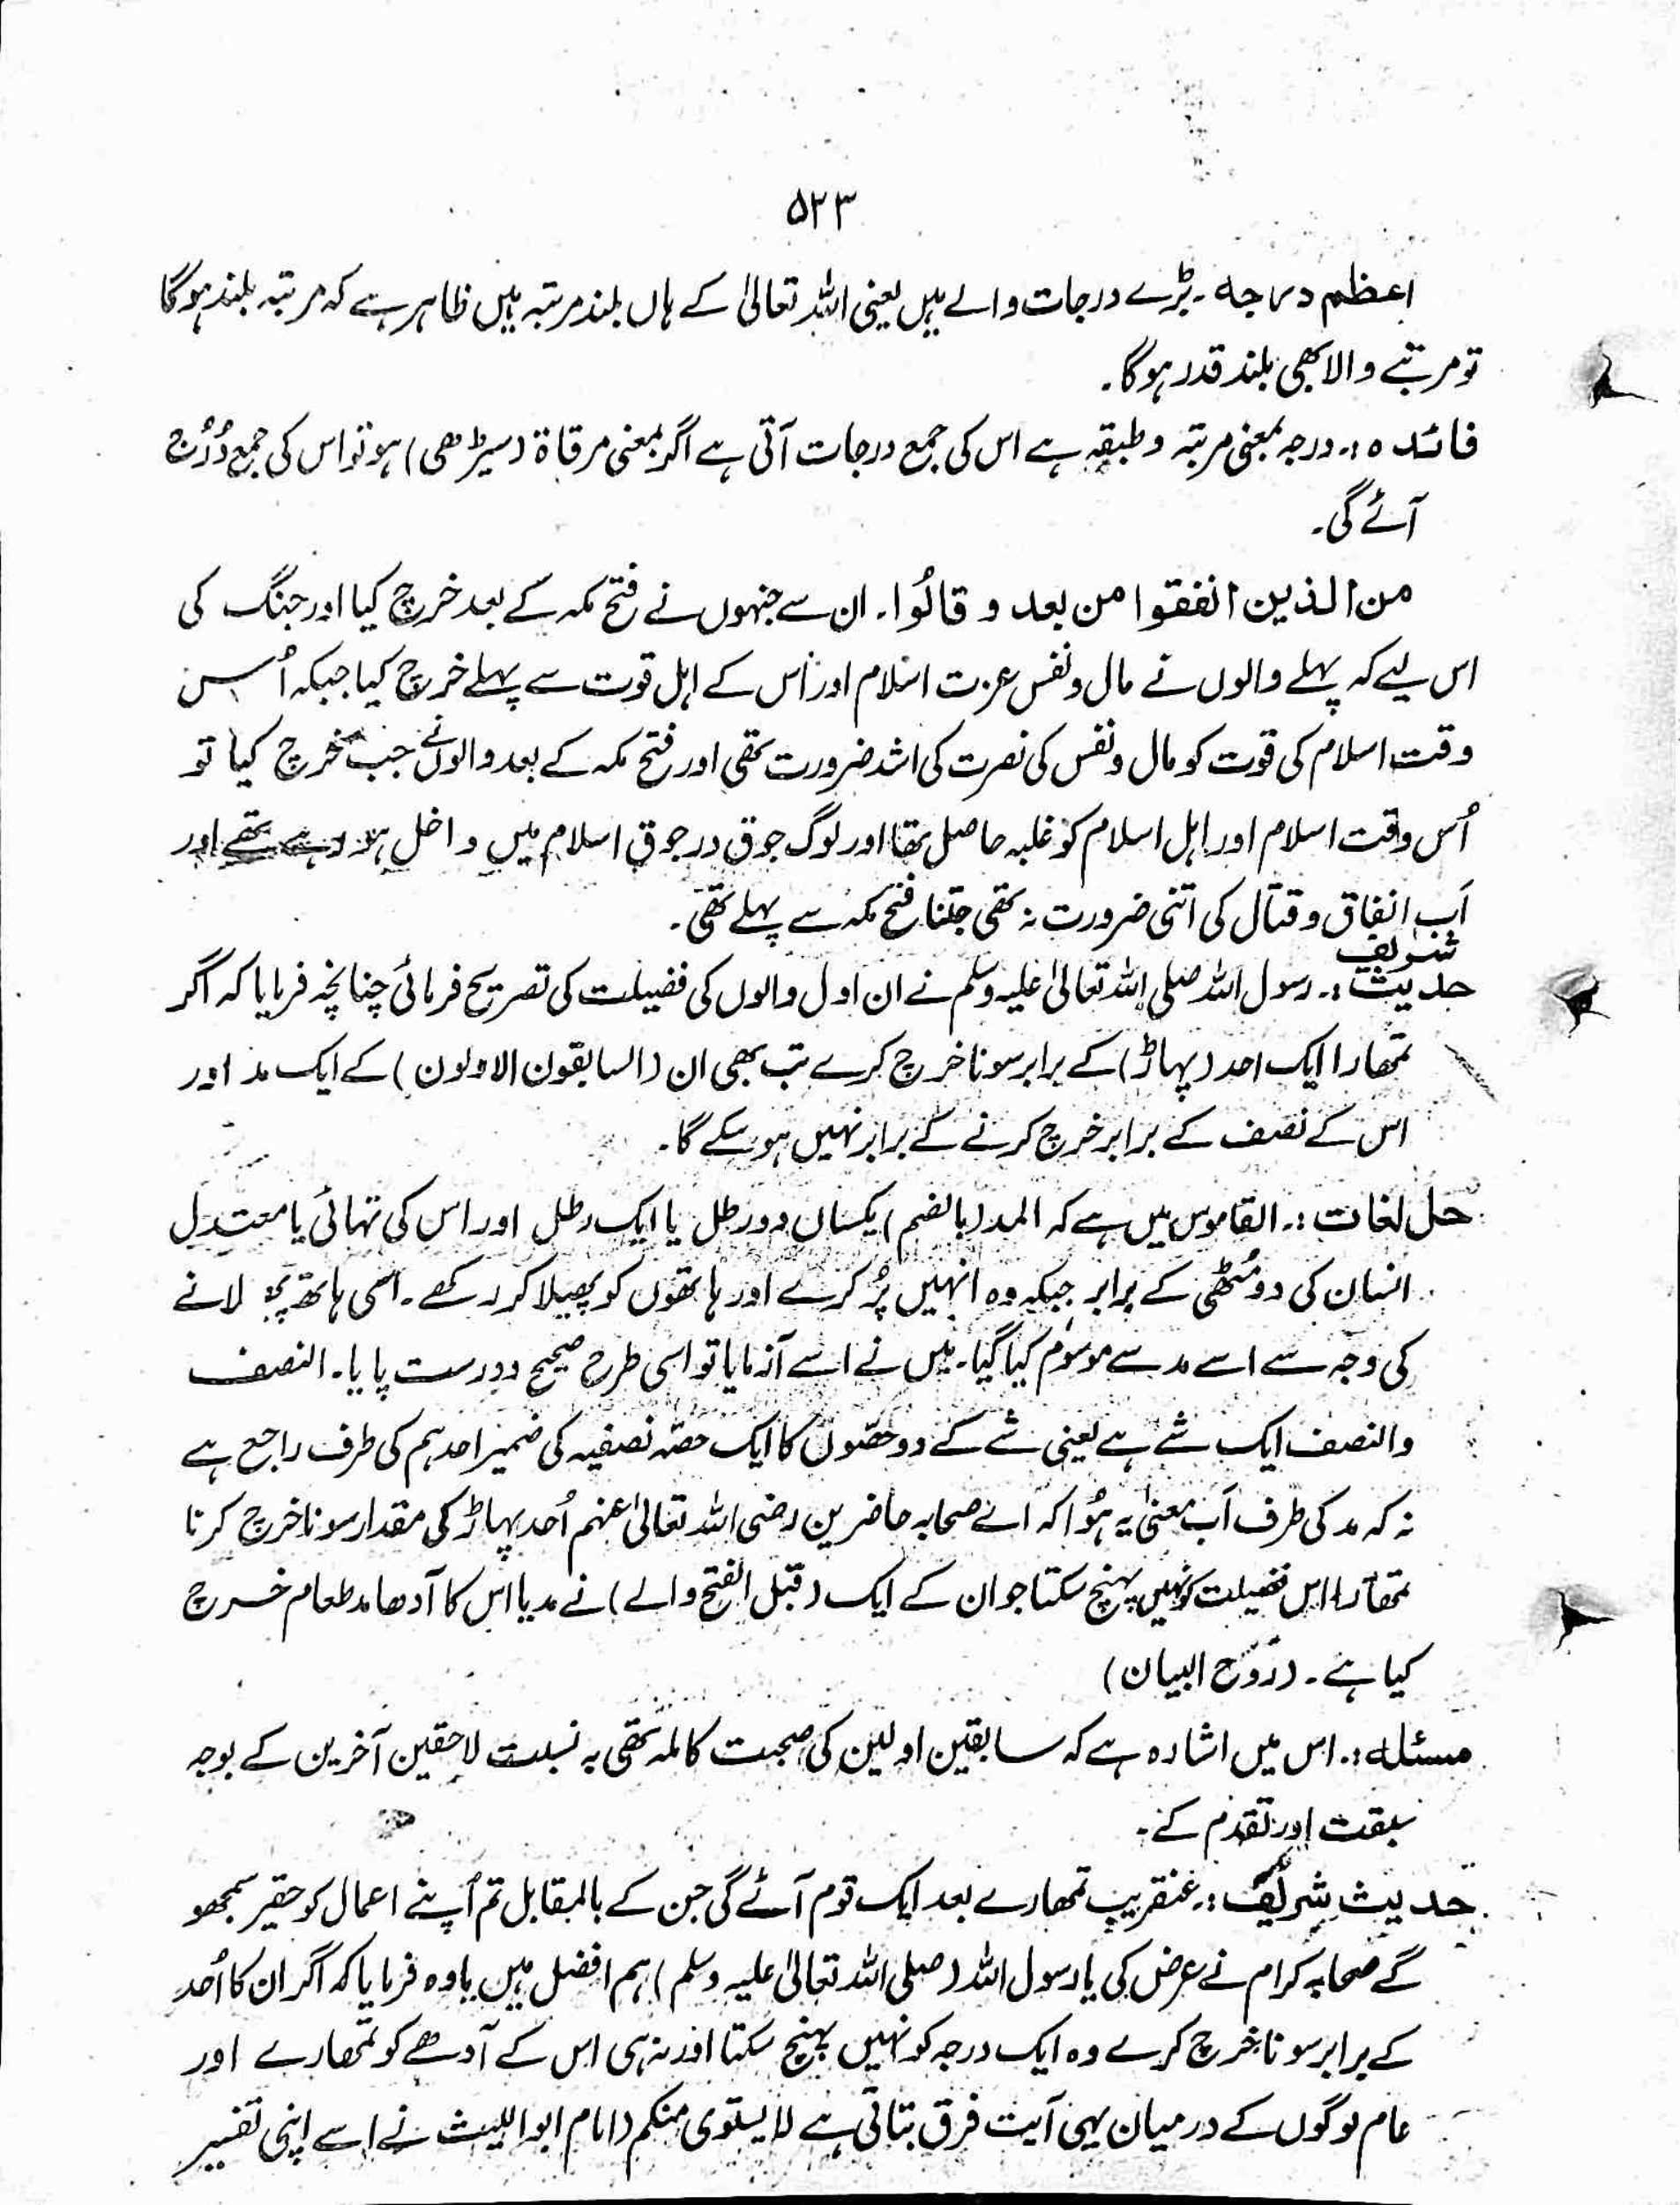 ۵۲۳
اعظم درجہ ۔ بڑے درجات والے ہیں یعنی اللہ تعالیٰ کے ہاں بلند مرتبہ ہیں ظاہر ہے کہ مرتبہ بلند ہوگا
تو مرتبے والا بھی بلند قدر ہوگا ۔
فائدہ :۔ درجہ بمعنی مرتبہ و طبقہ ہے اس کی جمع درجات آتی ہے اگر بمعنی مرقاۃ (سیڑھی) ہو تو اس کی جمع دُرُج
آئے گی ۔
من الذین انفقوا من بعد و قالُوا ۔ ان سے جنہوں نے فتح مکہ کے بعد خرچ کیا اور جنگ کی
اس لیے کہ پہلے والوں نے مال و نفس عزت اسلام اور اُس کے اہل قوت سے پہلے خرچ کیا جبکہ اُس
وقت اسلام کی قوت کو مال و نفس کی نصرت کی اشد ضرورت تھی اور فتح مکہ کے بعد والوں نے جب خرچ کیا تو
اُس وقت اسلام اور اہل اسلام کو غلبہ حاصل تھا اور لوگ جوق در جوق اسلام میں داخل ہو رہے تھے اور
اَب انفاق و قتال کی اتنی ضرورت نہ تھی جتنا فتح مکہ سے پہلے تھی ۔
حدیث شریف :۔ رسول اللہ صلی اللہ تعالیٰ علیہ وسلم نے ان اول والوں کی فضیلت کی تصریح فرمائی چنانچہ فرمایا کہ اگر
تمھارا ایک احد (پہاڑ) کے برابر سونا خرچ کرے تب بھی ان (السابقون الاولون) کے ایک مد اور
اس کے نصف کے برابر خرچ کرنے کے برابر نہیں ہو سکے گا ۔
حل لغات :۔ القاموس میں ہے کہ المد (بالضم) یکساں دو رطل یا ایک رطل اور اس کی تہائی یا معتدل
انسان کی دو مُٹھی کے برابر جبکہ وہ انہیں پُر کرے اور ہاتھوں کو پھیلا کر رکھے ۔ اسی ہاتھ لانے
کی وجہ سے اسے مد سے موسوم کیا گیا ۔ میں نے اسے آزمایا تو اسی طرح صحیح و درست پایا ۔ النصف
والنصف ایک شے ہے یعنی شے کے دو حصّوں کا ایک حصّہ نصفیہ کی ضمیر احدہم کی طرف راجع ہے
نہ کہ مد کی طرف اَب معنیٰ یہ ہُوا کہ اے صحابہ حاضرین رضی اللہ تعالیٰ عنہم اُحد پہاڑ کی مقدار سونا خرچ کرنا
تمھارا اس فضیلت کو نہیں پہنچ سکتا جو ان کے ایک (قبل الفتح والے) نے مد یا اس کا آدھا مد طعام خرچ
کیا ہے ۔ (رُوح البیان)
مسئلہ :۔ اس میں اشارہ ہے کہ سابقین اولین کی صحبت کاملہ تھی بہ نسبت لاحقین آخرین کے بوجہ
سبقت اور تقدم کے ۔
حدیث شریف :۔ عنقریب تمھارے بعد ایک قوم آئے گی جن کے بالمقابل تم اُپنے اعمال کو حقیر سمجھو
گے صحابہ کرام نے عرض کی یا رسول اللہ (صلی اللہ تعالیٰ علیہ وسلم) ہم افضل ہیں یا وہ فرمایا کہ اگر ان کا اُحد
کے برابر سونا خرچ کرے وہ ایک درجہ کو نہیں پہنچ سکتا اور نہ ہی اس کے آدھے کو تمھارے اور
عام لوگوں کے درمیان یہی آیت فرق بتاتی ہے لایستوی منکم (امام ابواللیث نے اسے اپنی تفسیر